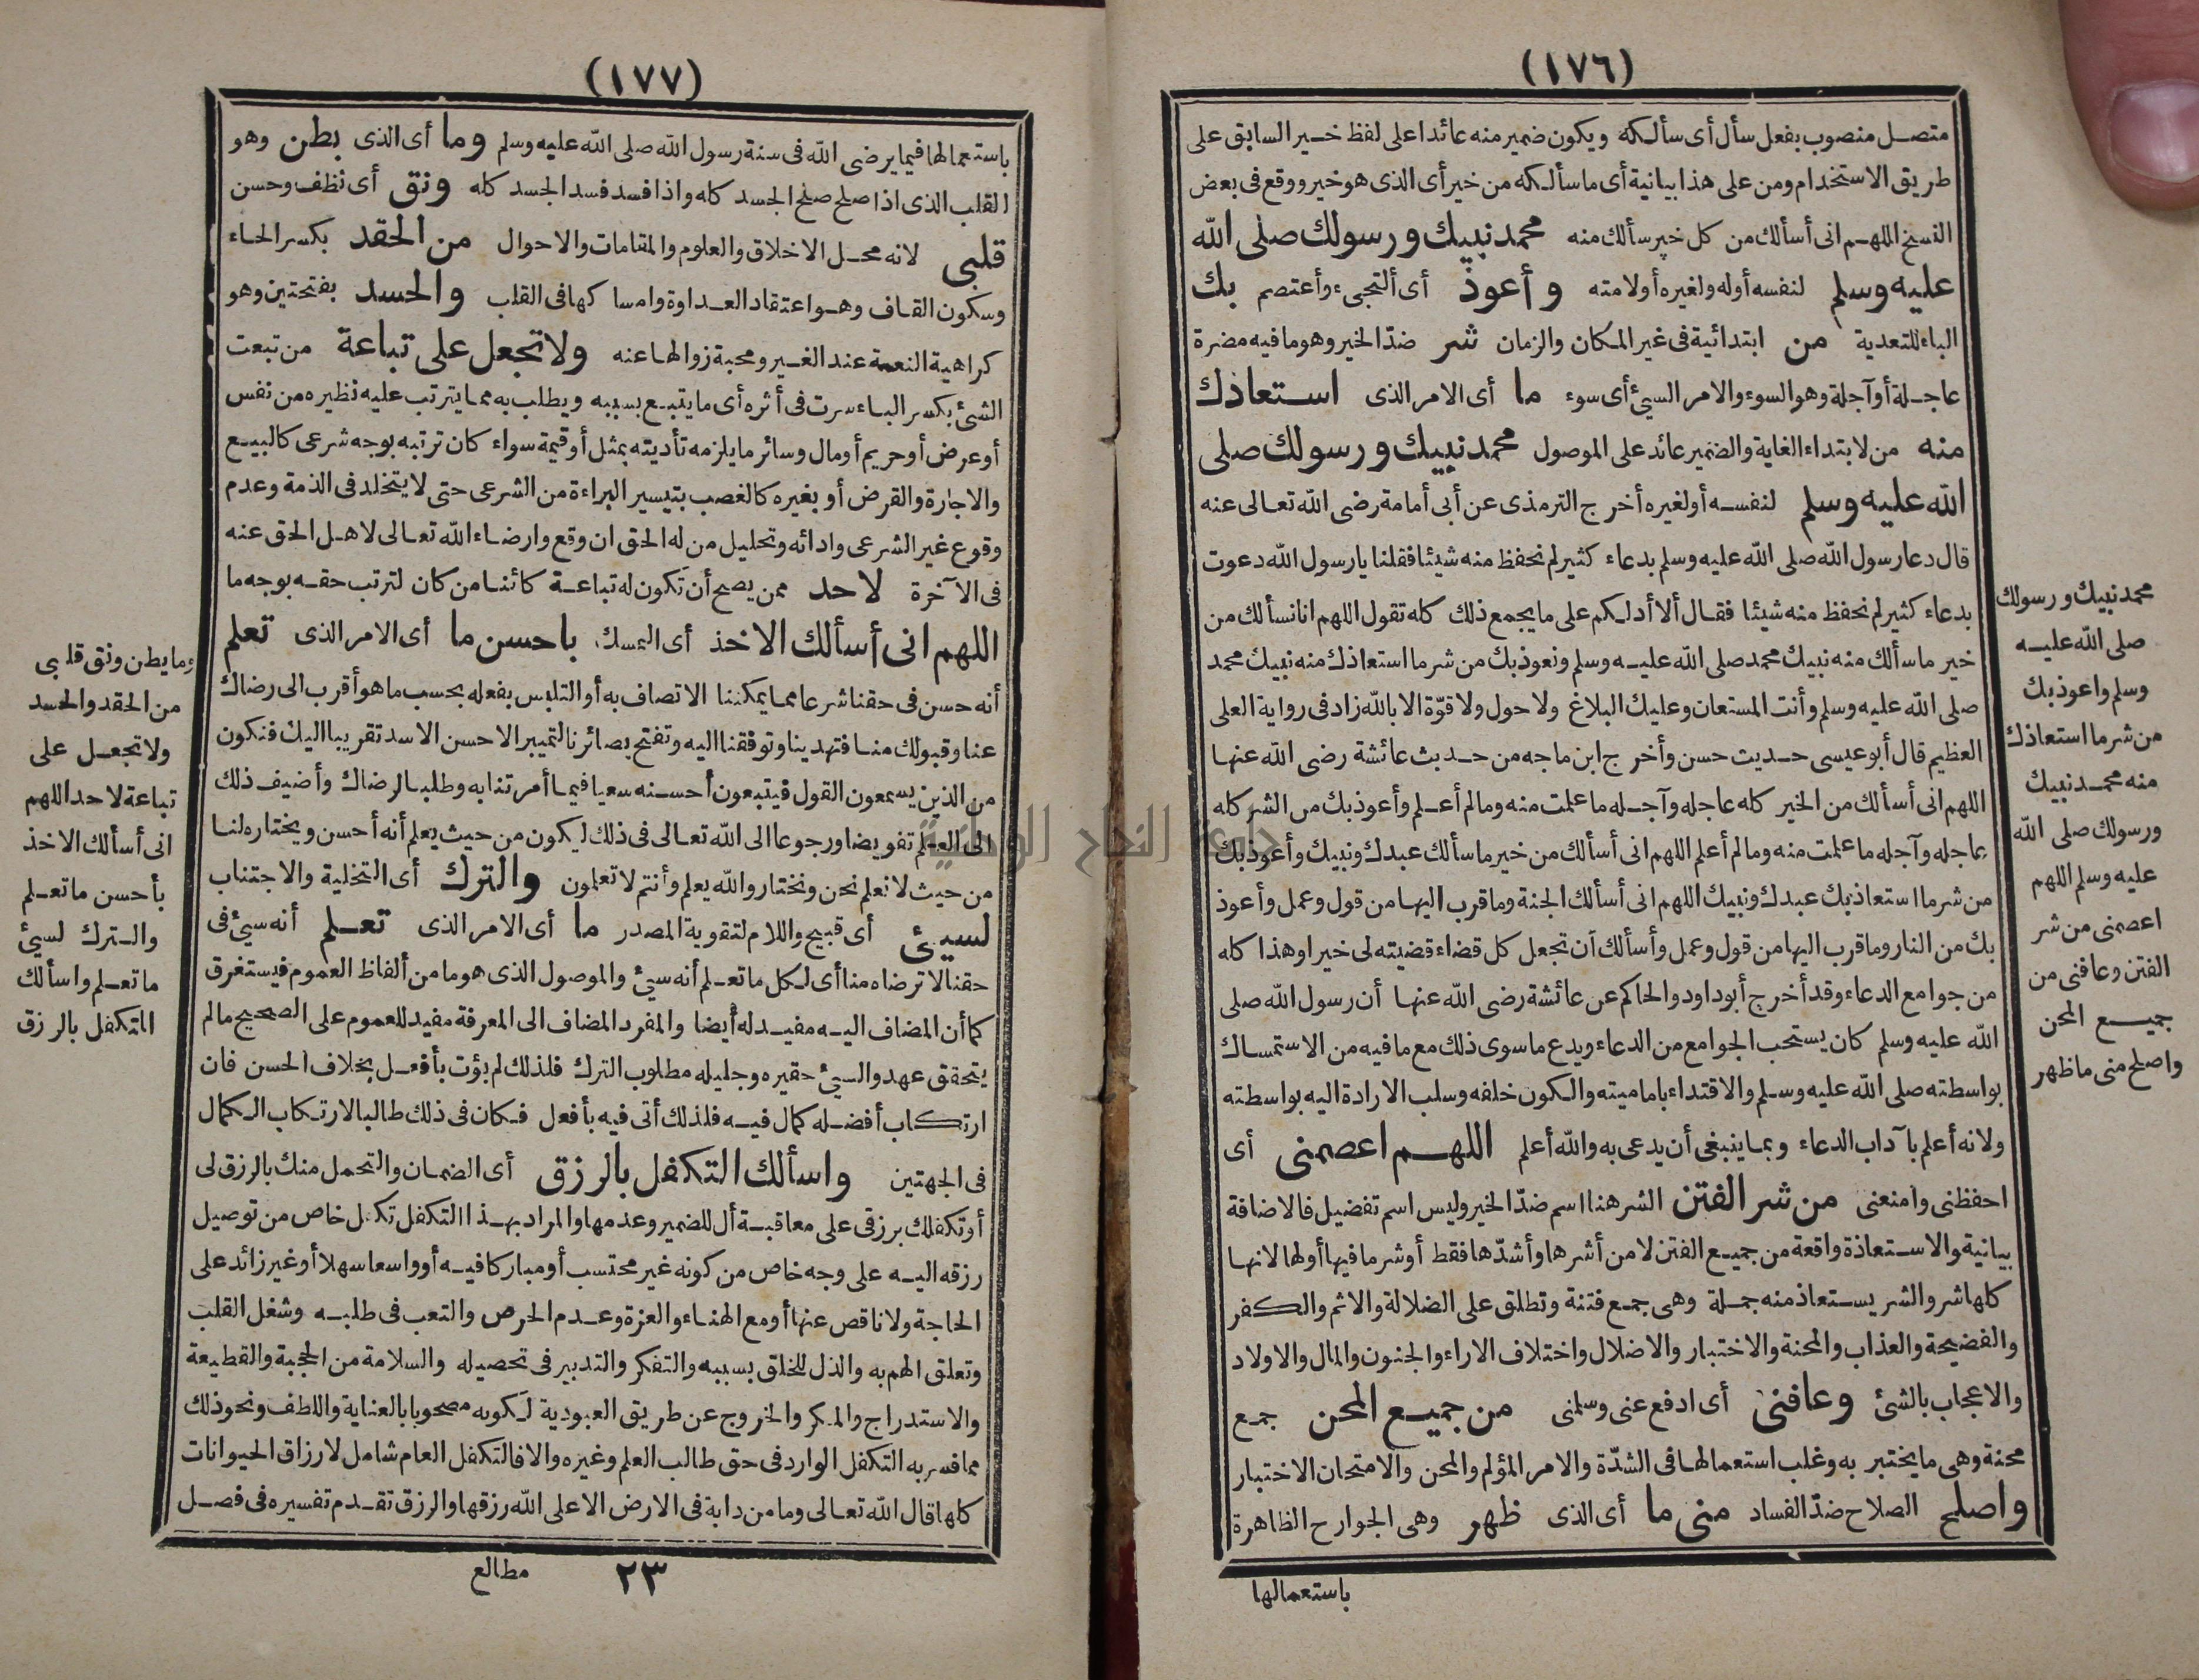 (١٧٦)
متصل منصوب بفعل سأل أى سألكه ويكون ضمير منه عائدا على لفظ خير السابق على
طريق الاستخدام ومن على هذا بيانية أى ما سألكه من خير أى الذى هو خير ووقع فى بعض
النسخ اللهم انى أسألك من كل خير سألك منه محمد نبيك ورسولك صلى الله
عليه وسلم لنفسه أوله ولغيره أولامته وأعوذ أى ألتجىء وأعتصم بك
الباء للتعدية من ابتدائية فى غير المكان والزمان شر ضدّ الخير وهو ما فيه مضرة
عاجلة أو آجلة وهو السوء والامر السيئ أى سوء ما أى الامر الذى استعاذك
منه من لابتداء الغاية والضمير عائد على الموصول محمد نبيك ورسولك صلى
الله عليه وسلم لنفسه أو لغيره أخرج الترمذى عن أبى أمامة رضى الله تعالى عنه
قال دعا رسول الله صلى الله عليه وسلم بدعاء كثير لم نحفظ منه شيئا فقلنا يا رسول الله دعوت
بدعاء كثير لم نحفظ منه شيئا فقال ألا أدلكم على ما يجمع ذلك كله تقول اللهم انا نسألك من
خير ما سألك منه نبيك محمد صلى الله عليه وسلم ونعوذ بك من شر ما استعاذك منه نبيك محمد
صلى الله عليه وسلم وأنت المستعان وعليك البلاغ ولا حول ولا قوّة الا بالله زاد فى رواية العلى
العظيم قال أبو عيسى حديث حسن وأخرج ابن ماجه من حديث عائشة رضى الله عنها
اللهم انى أسألك من الخير كله عاجله وآجله ما علمت منه وما لم أعلم وأعوذ بك من الشر كله
عاجله وآجله ما علمت منه وما لم أعلم اللهم انى أسألك من خير ما سألك عبدك ونبيك وأعوذ بك
من شر ما استعاذ بك عبدك ونبيك اللهم انى أسألك الجنة وما قرب اليها من قول وعمل وأعوذ
بك من النار وما قرب اليها من قول وعمل وأسألك أن تجعل كل قضاء قضيته لى خيرا وهذا كله
من جوامع الدعاء وقد أخرج أبو داود والحاكم عن عائشة رضى الله عنها أن رسول الله صلى
الله عليه وسلم كان يستحب الجوامع من الدعاء ويدع ما سوى ذلك مع ما فيه من الاستمساك
بواسطته صلى الله عليه وسلم والاقتداء باماميته والكون خلفه وسلب الارادة اليه بواسطته
ولانه أعلم بآداب الدعاء وبما ينبغى أن يدعى به والله أعلم اللهم اعصمنى أى
احفظنى وامنعنى من شر الفتن الشر هنا اسم ضدّ الخير وليس اسم تفضيل فالاضافة
بيانية والاستعاذة واقعة من جميع الفتن لا من أشرها وأشدّها فقط أو شر ما فيها أولها لانها
كلها شر والشر يستعاذ منه جملة وهى جمع فتنة وتطلق على الضلالة والاثم والكفر
والفضيحة والعذاب والمحنة والاختبار والاضلال واختلاف الاراء والجنون والمال والاولاد
والاعجاب بالشئ وعافنى أى ادفع عنى وسلمنى من جميع المحن جمع
محنة وهى ما يختبر به وغلب استعمالها فى الشدّة والامر المؤلم والمحن والامتحان الاختبار
واصلح الصلاح ضدّ الفساد منى ما أى الذى ظهر وهى الجوارح الظاهرة
باستعمالها
محمد نبيك ورسولك
صلى الله عليه
وسلم واعوذ بك
من شر ما استعاذك
منه محمد نبيك
ورسولك صلى الله
عليه وسلم اللهم
اعصمنى من شر
الفتن وعافنى من
جميع المحن
واصلح منى ما ظهر
(١٧٧)
باستعمالها فيما يرضى الله فى سنة رسول الله صلى الله عليه وسلم وما أى الذى بطن وهو
القلب الذى اذا صلح صلح الجسد كله واذا فسد فسد الجسد كله ونق أى نظف وحسن
قلبى لانه محل الاخلاق والعلوم والمقامات والاحوال من الحقد بكسر الحاء
وسكون القاف وهو اعتقاد العداوة وامساكها فى القلب والحسد بفتحتين وهو
كراهية النعمة عند الغير ومحبة زوالها عنه ولا تجعل على تباعة من تبعت
الشئ بكسر الباء سرت فى أثره أى ما يتبع بسببه ويطلب به مما يترتب عليه نظيره من نفس
أو عرض أو حريم أو مال وسائر ما يلزمه تأديته بمثل أو قيمة سواء كان ترتبه بوجه شرعى كالبيع
والاجارة والقرض أو بغيره كالغصب بتيسير البراءة من الشرعى حتى لا يتخلد فى الذمة وعدم
وقوع غير الشرعى وادائه وتحليل من له الحق ان وقع وارضاء الله تعالى لاهل الحق عنه
فى الآخرة لاحد ممن يصح أن تكون له تباعة كائنا من كان لترتب حقه بوجه ما
اللهم انى أسألك الاخذ أى التمسك باحسن ما أى الامر الذى تعلم
أنه حسن فى حقنا شرعا مما يمكننا الاتصاف به أو التلبس بفعله بحسب ما هو أقرب الى رضاك
عنا وقبولك منا فتهدينا وتوفقنا اليه وتفتح بصائرنا لتمييز الاحسن الاسد تقريبا اليك فنكون
من الذين يسمعون القول فيتبعون أحسنه سعيا فيما أمرتنا به وطلبا لرضاك وأضيف ذلك
الى العلم تفويضا ورجوعا الى الله تعالى فى ذلك ليكون من حيث يعلم أنه أحسن ويختاره لنا
من حيث لا نعلم نحن ونختار والله يعلم وأنتم لا تعلمون والترك أى التخلية والاجتناب
لسيئ أى قبيح واللام لتقوية المصدر ما أى الامر الذى تعلم أنه سيئ فى
حقنا لا ترضاه منا أى لكل ما تعلم أنه سيئ والموصول الذى هو ما من ألفاظ العموم فيستغرق
كما أن المضاف اليه مفيد له أيضا والمفرد المضاف الى المعرفة مفيد للعموم على الصحيح ما لم
يتحقق عهد والسيئ حقيره وجليله مطلوب الترك فلذلك لم يؤت بأفعل بخلاف الحسن فان
ارتكاب أفضله كمال فيه فلذلك أتى فيه بأفعل فكان فى ذلك طالبا لارتكاب الكمال
فى الجهتين واسألك التكفل بالرزق أى الضمان والتحمل منك بالرزق لى
أو تكفلك برزقى على معاقبة أل للضمير وعدمها والمراد بهذا التكفل تكفل خاص من توصيل
رزقه اليه على وجه خاص من كونه غير محتسب أو مباركا فيه أو واسعا سهلا أو غير زائد على
الحاجة ولا ناقص عنها أو مع الهناء والعزة وعدم الحرص والتعب فى طلبه وشغل القلب
وتعلق الهم به والذل للخلق بسببه والتفكر والتدبير فى تحصيله والسلامة من الحجبة والقطيعة
والاستدراج والمكر والخروج عن طريق العبودية لكونه مصحوبا بالعناية واللطف ونحو ذلك
مما فسر به التكفل الوارد فى حق طالب العلم وغيره والا فالتكفل العام شامل لارزاق الحيوانات
كلها قال الله تعالى وما من دابة فى الارض الا على الله رزقها والرزق تقدم تفسيره فى فصل
٢٣ مطالع
وما بطن ونق قلبى
من الحقد والحسد
ولا تجعل على
تباعة لاحد اللهم
انى أسألك الاخذ
بأحسن ما تعلم
والترك لسيئ
ما تعلم واسألك
التكفل بالرزق